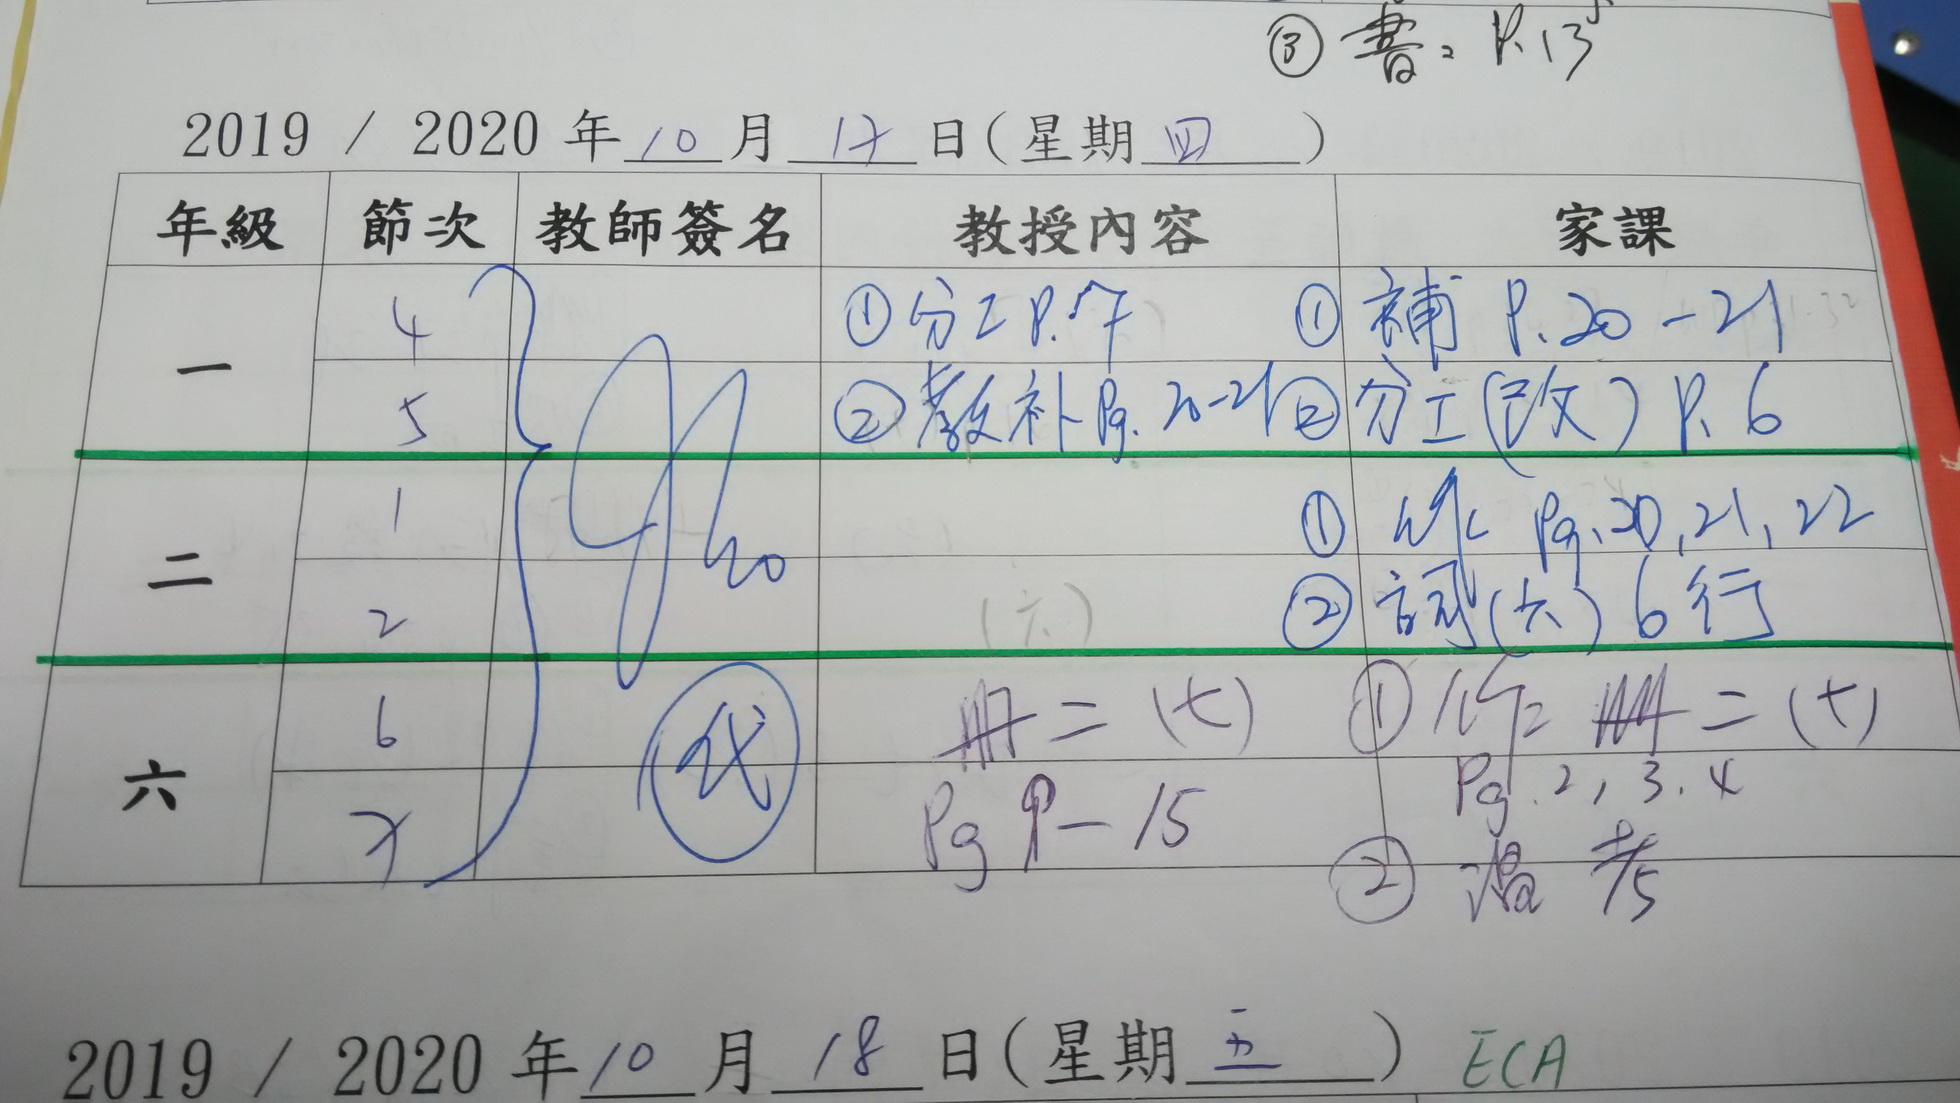 ③ 書：P.13
2019 / 2020 年 10 月 17 日(星期 四 )
年級 節次 教師簽名 教授內容 家課
一 4 ①分工 P.7 ①補 P.20-21
5 ②教补 Pg.20-21 ②分工(改) P.6
二 1 ①作 Pg.20,21,22
2 (六) ②詞(六) 6行
六 6 代 冊二(七) ① 冊二(七)
7 Pg 9-15 Pg.2,3.4
② 溫
2019 / 2020 年 10 月 18 日(星期 五 ) ECA